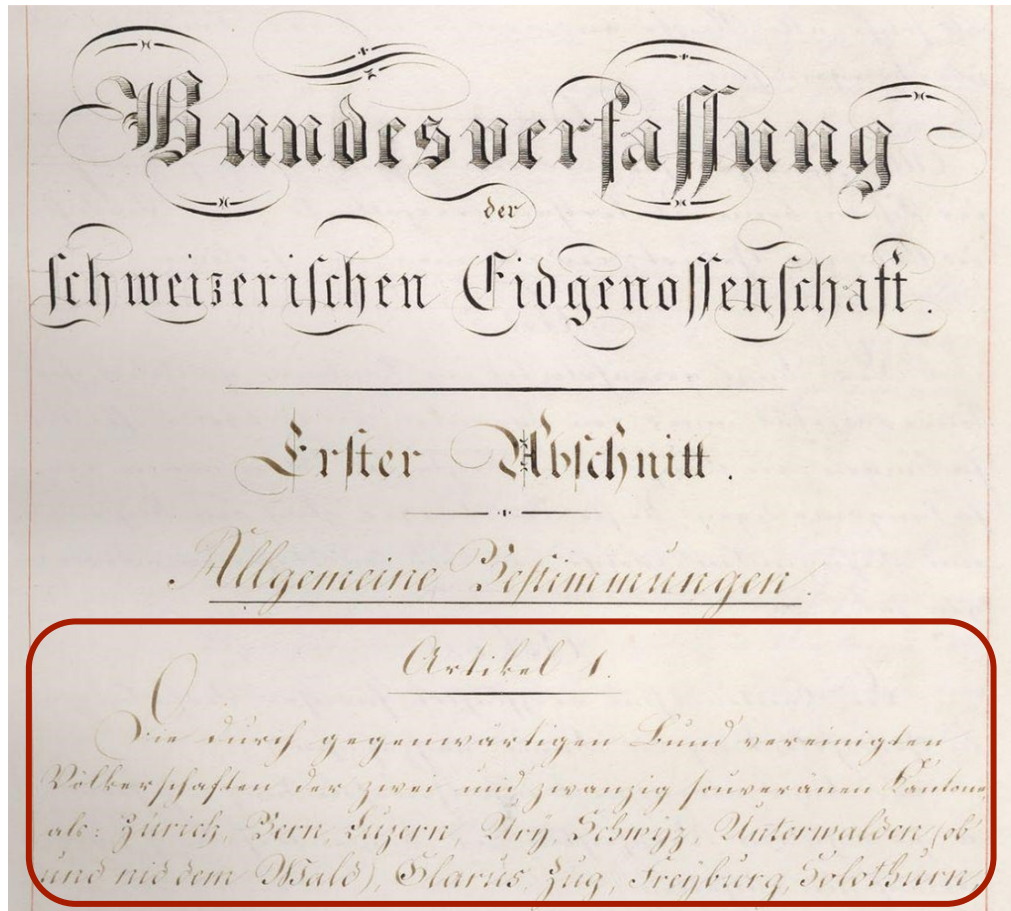 Bundesverfassung
der
schweizerischen Eidgenossenschaft.
Erster Abschnitt.
Allgemeine Bestimmungen.
Artikel 1.
Die durch gegenwärtigen Bund vereinigten
Völkerschaften der zwei und zwanzig souveränen Kantone,
als: Zürich, Bern, Luzern, Ury, Schwyz, Unterwalden (ob
und nid dem Wald), Glarus, Zug, Freyburg, Solothurn,